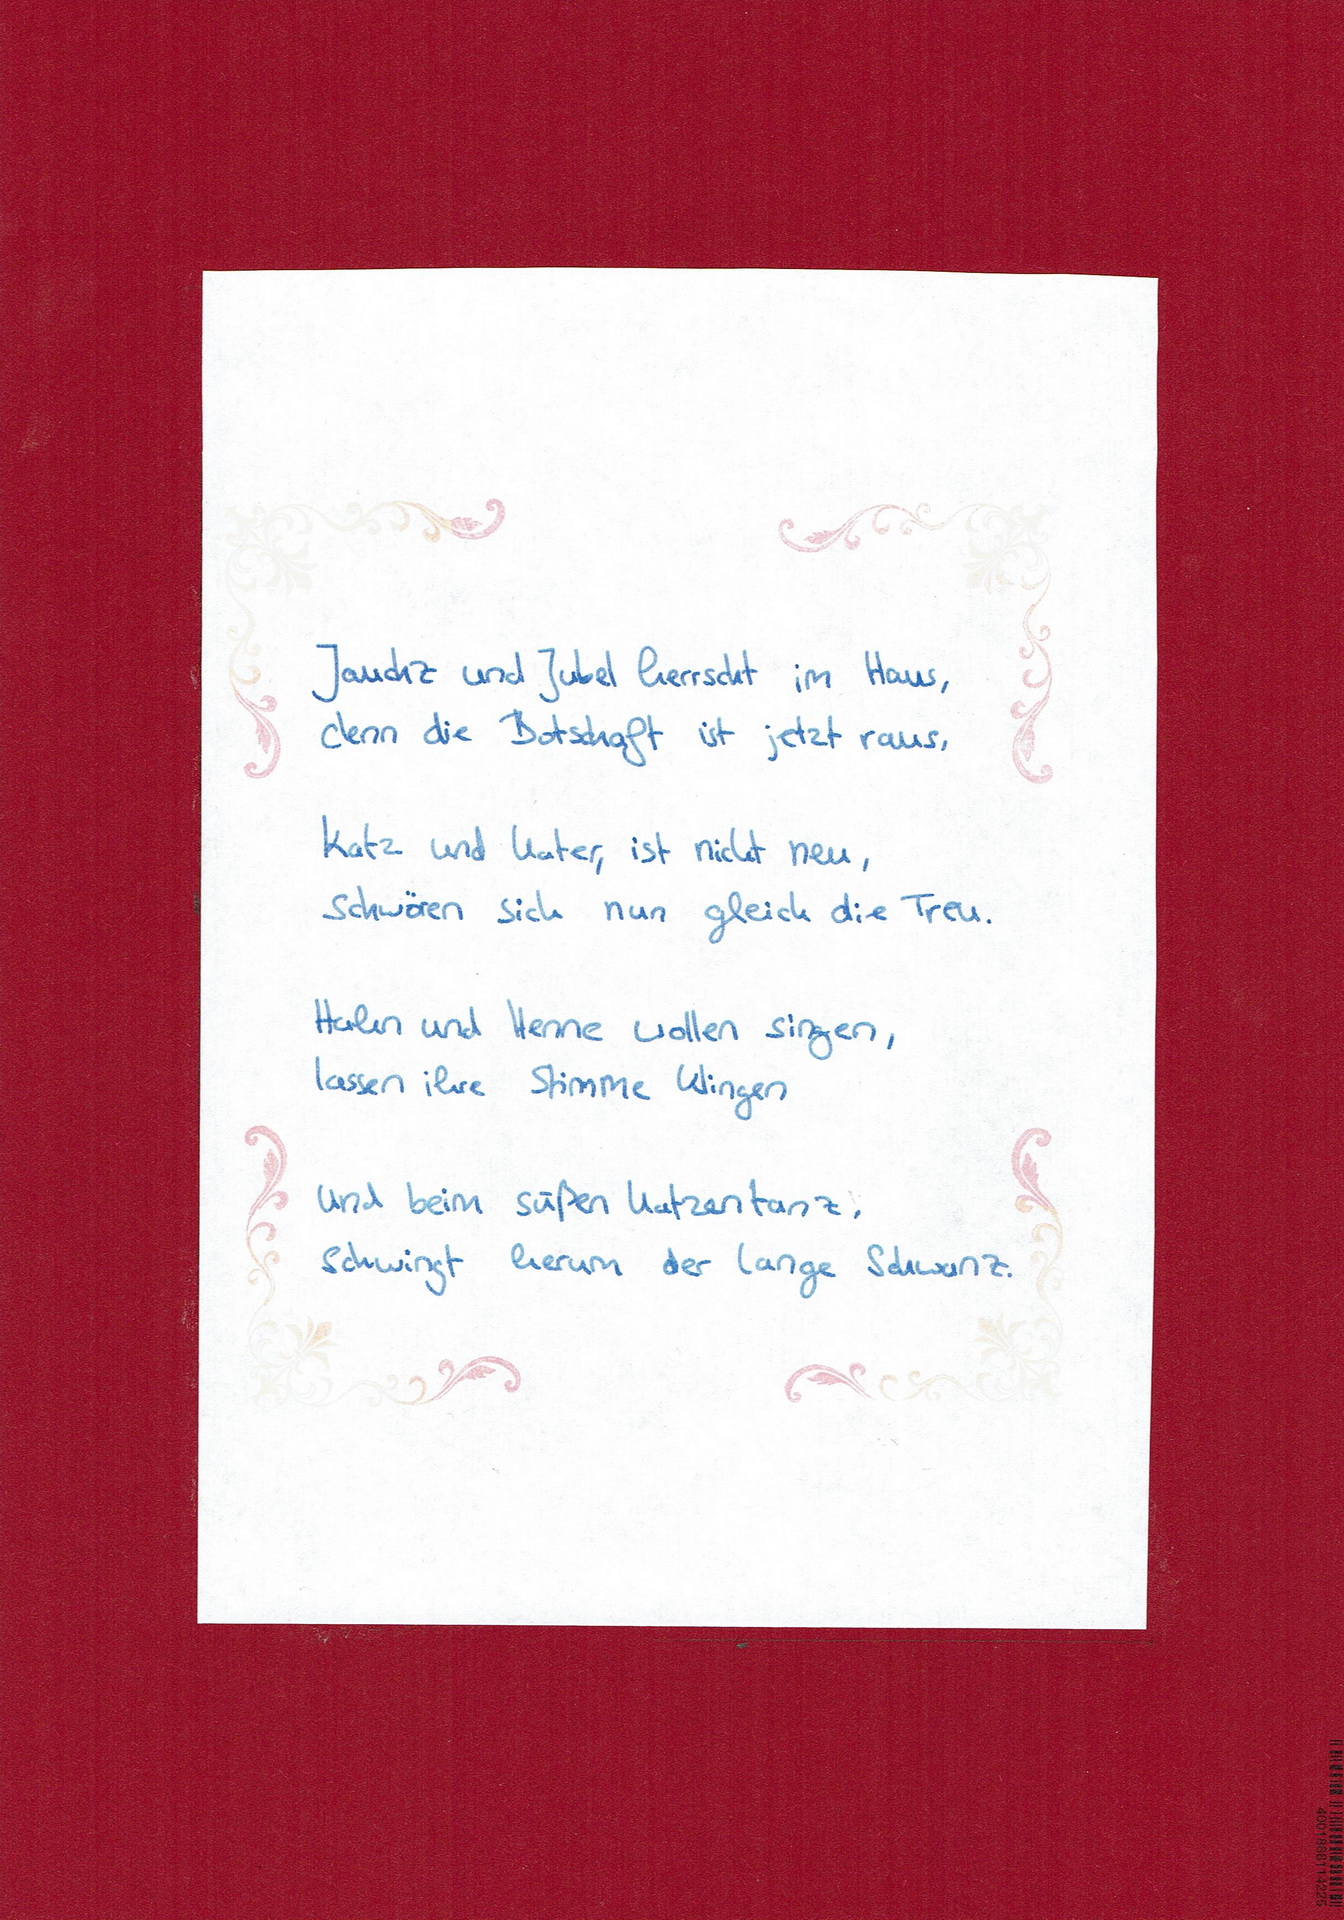 Jauchz und Jubel herrscht im Haus,
denn die Botschaft ist jetzt raus,
Katz und Kater, ist nicht neu,
schwören sich nun gleich die Treu.
Hahn und Henne wollen singen,
lassen ihre Stimme klingen
und beim süßen Katzentanz,
schwingt herum der lange Schwanz.
4001868114225